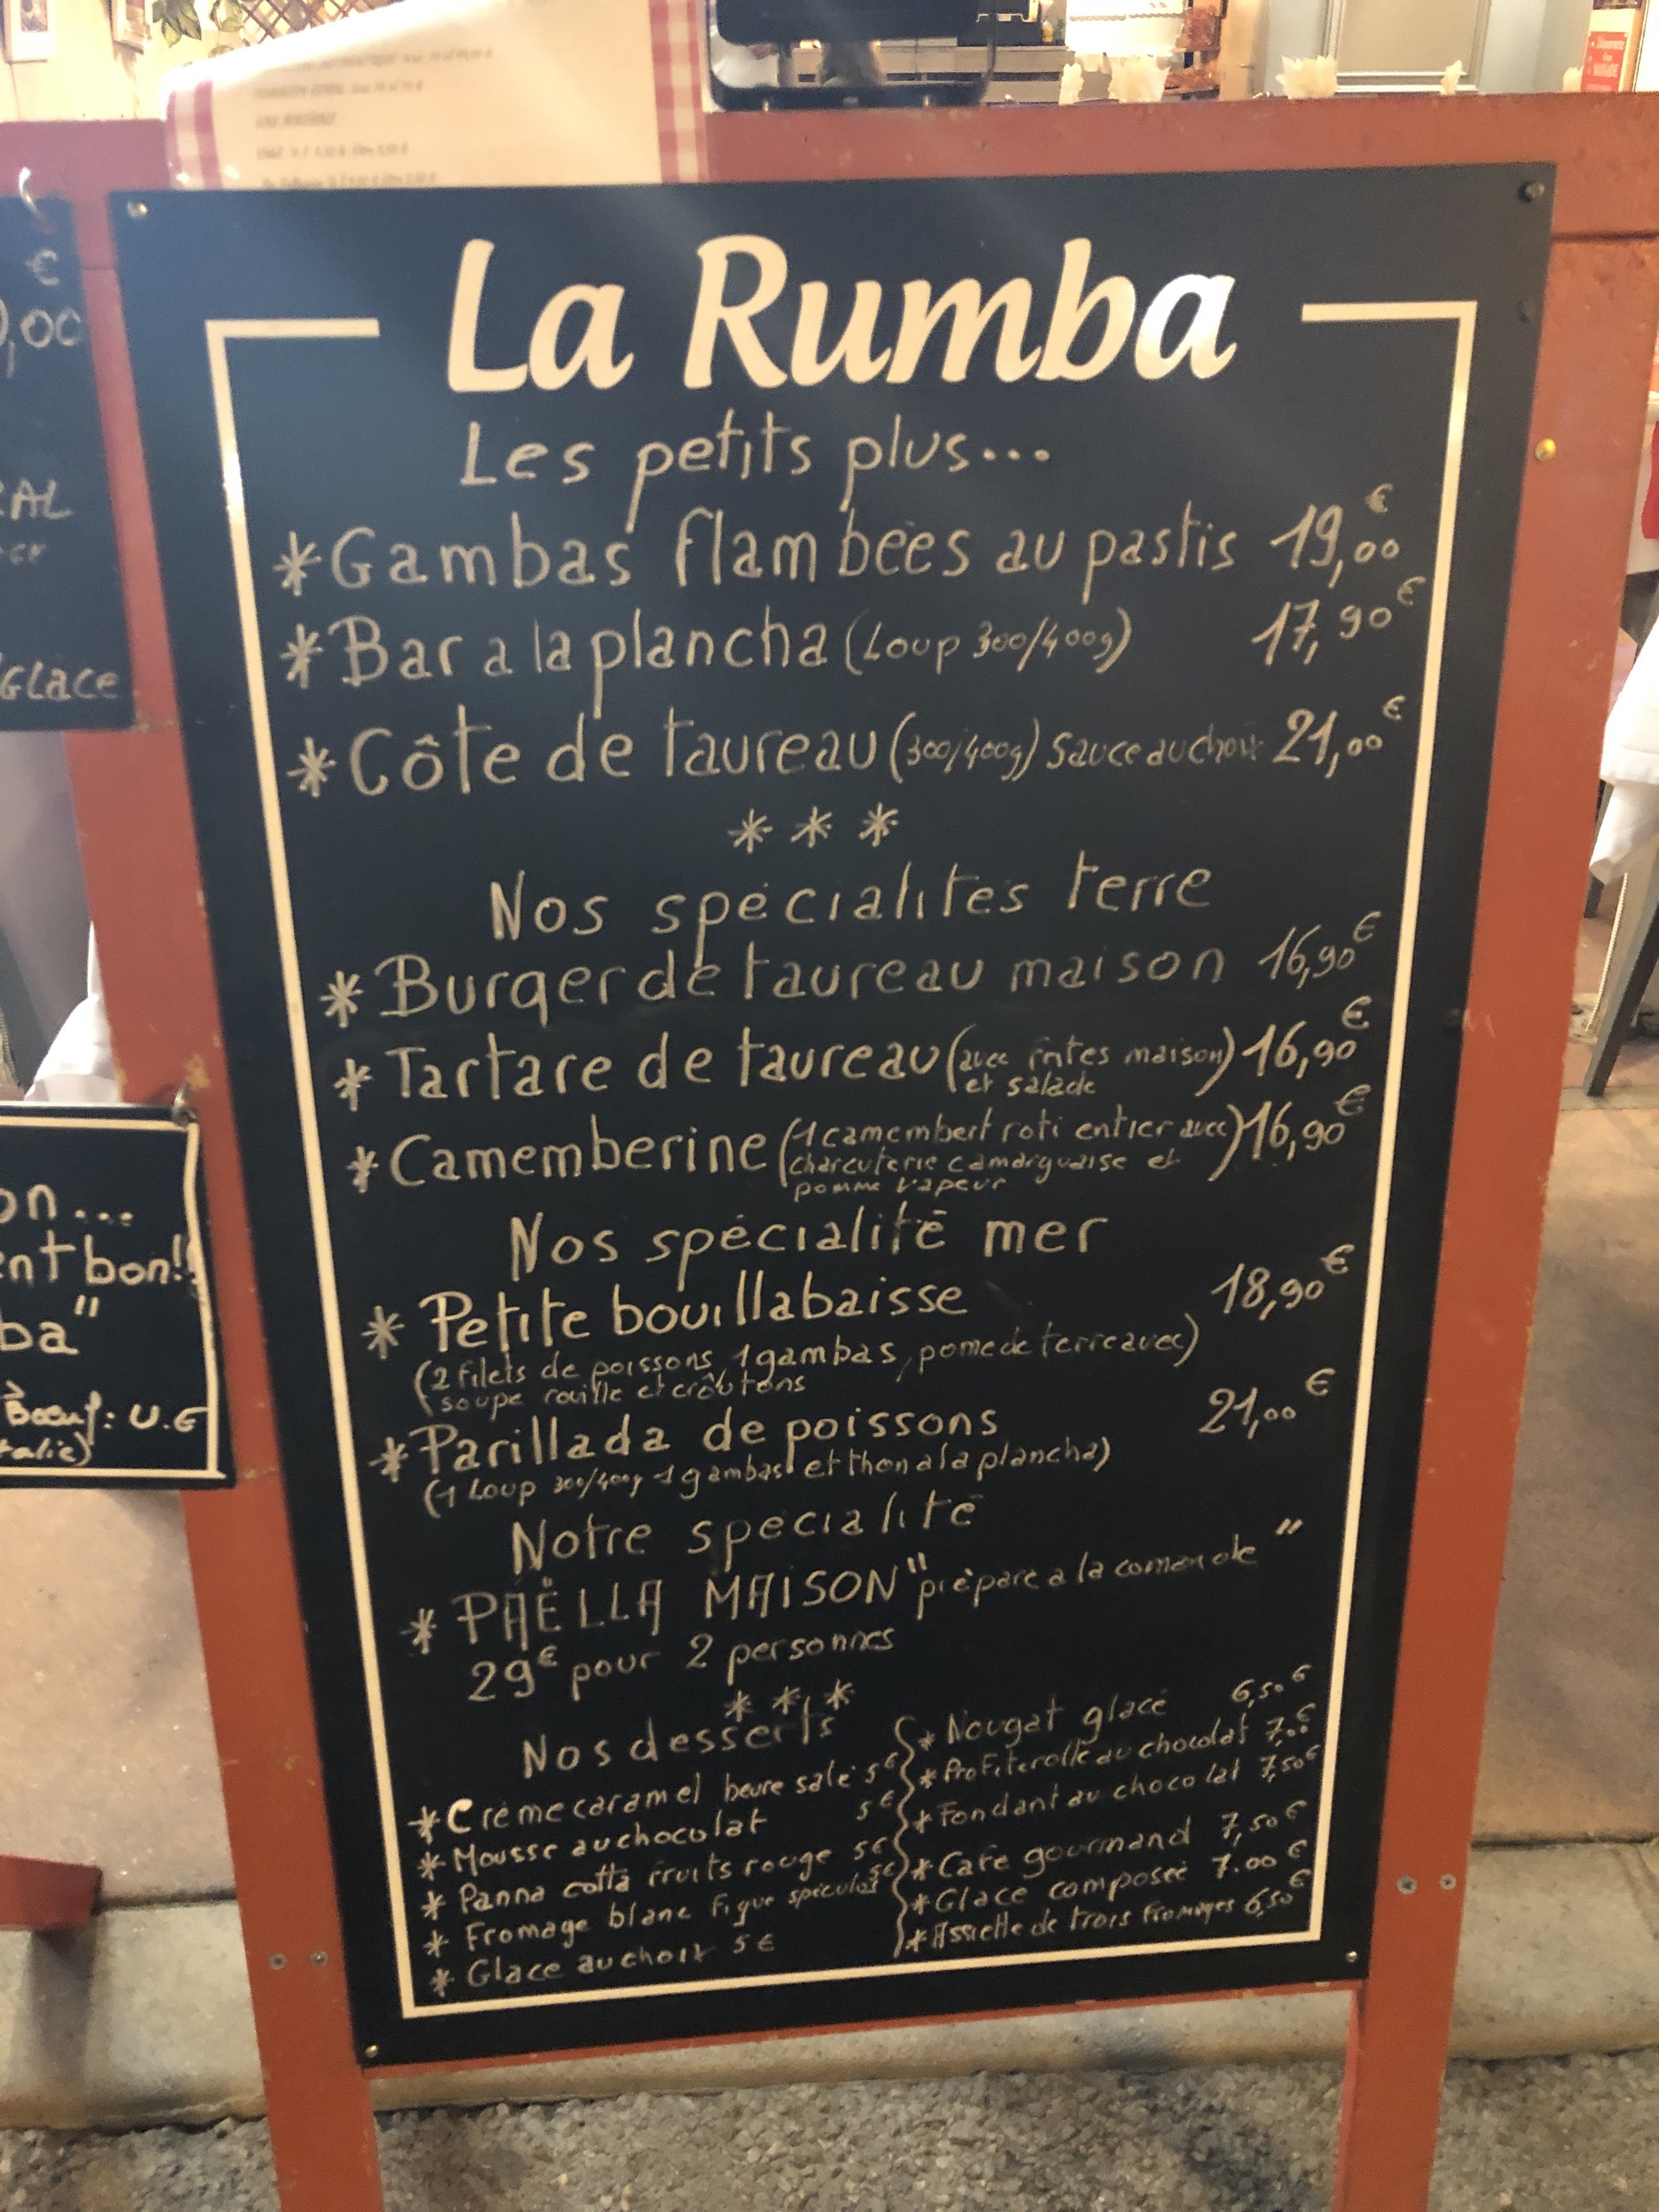 La Rumba
Les petits plus...
*Gambas flambées au pastis 19,00€
*Bar a la plancha (Loup 300/400g) 17,90€
*Côte de taureau (300/400g) Sauce au choix 21,00€
* * *
Nos spécialités terre
*Burger de taureau maison 16,90€
*Tartare de taureau (avec frites maison) 16,90€
et salade
*Camemberine (1 camembert roti entier avec) 16,90€
charcuterie camarguaise et
pomme vapeur
Nos spécialité mer
* Petite bouillabaisse 18,90€
(2 filets de poissons, 1 gambas, pome de terre avec)
soupe rouille et croûtons
*Parillada de poissons 21,00€
(1 Loup 300/400g 1 gambas et thon a la plancha)
Notre spécialité
* PAËLLA MAISON "prépare a la comande"
29€ pour 2 personnes
* * *
Nos desserts
*Crème caramel beure salé 5€
* Mousse au chocolat 5€
* Panna cotta fruits rouge 5€
* Fromage blanc figue spéculos 5€
* Glace au choix 5€
* Nougat glacé 6,50€
* Profiterolle au chocolat 7.€
* Fondant au chocolat 7,50€
* Café gourmand 7,50€
* Glace composée 7.00€
* Assiette de trois fromages 6,50€
€
,00
Glace
on...
ent bon!!
ba"
Boeuf: U.E
talie)